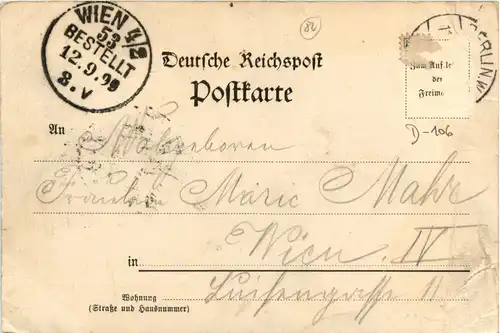 WIEN 4/2
53
BESTELLT
12.9.99
8.V
82
BERLIN W
Deutsche Reichspost
Postkarte
Zum Aufkle
der
Freima
D-106
An Wohlgeboren
Fräulein Marie Mahr
Wien IV
in
Luisengasse 11
Wohnung
(Straße und Hausnummer)